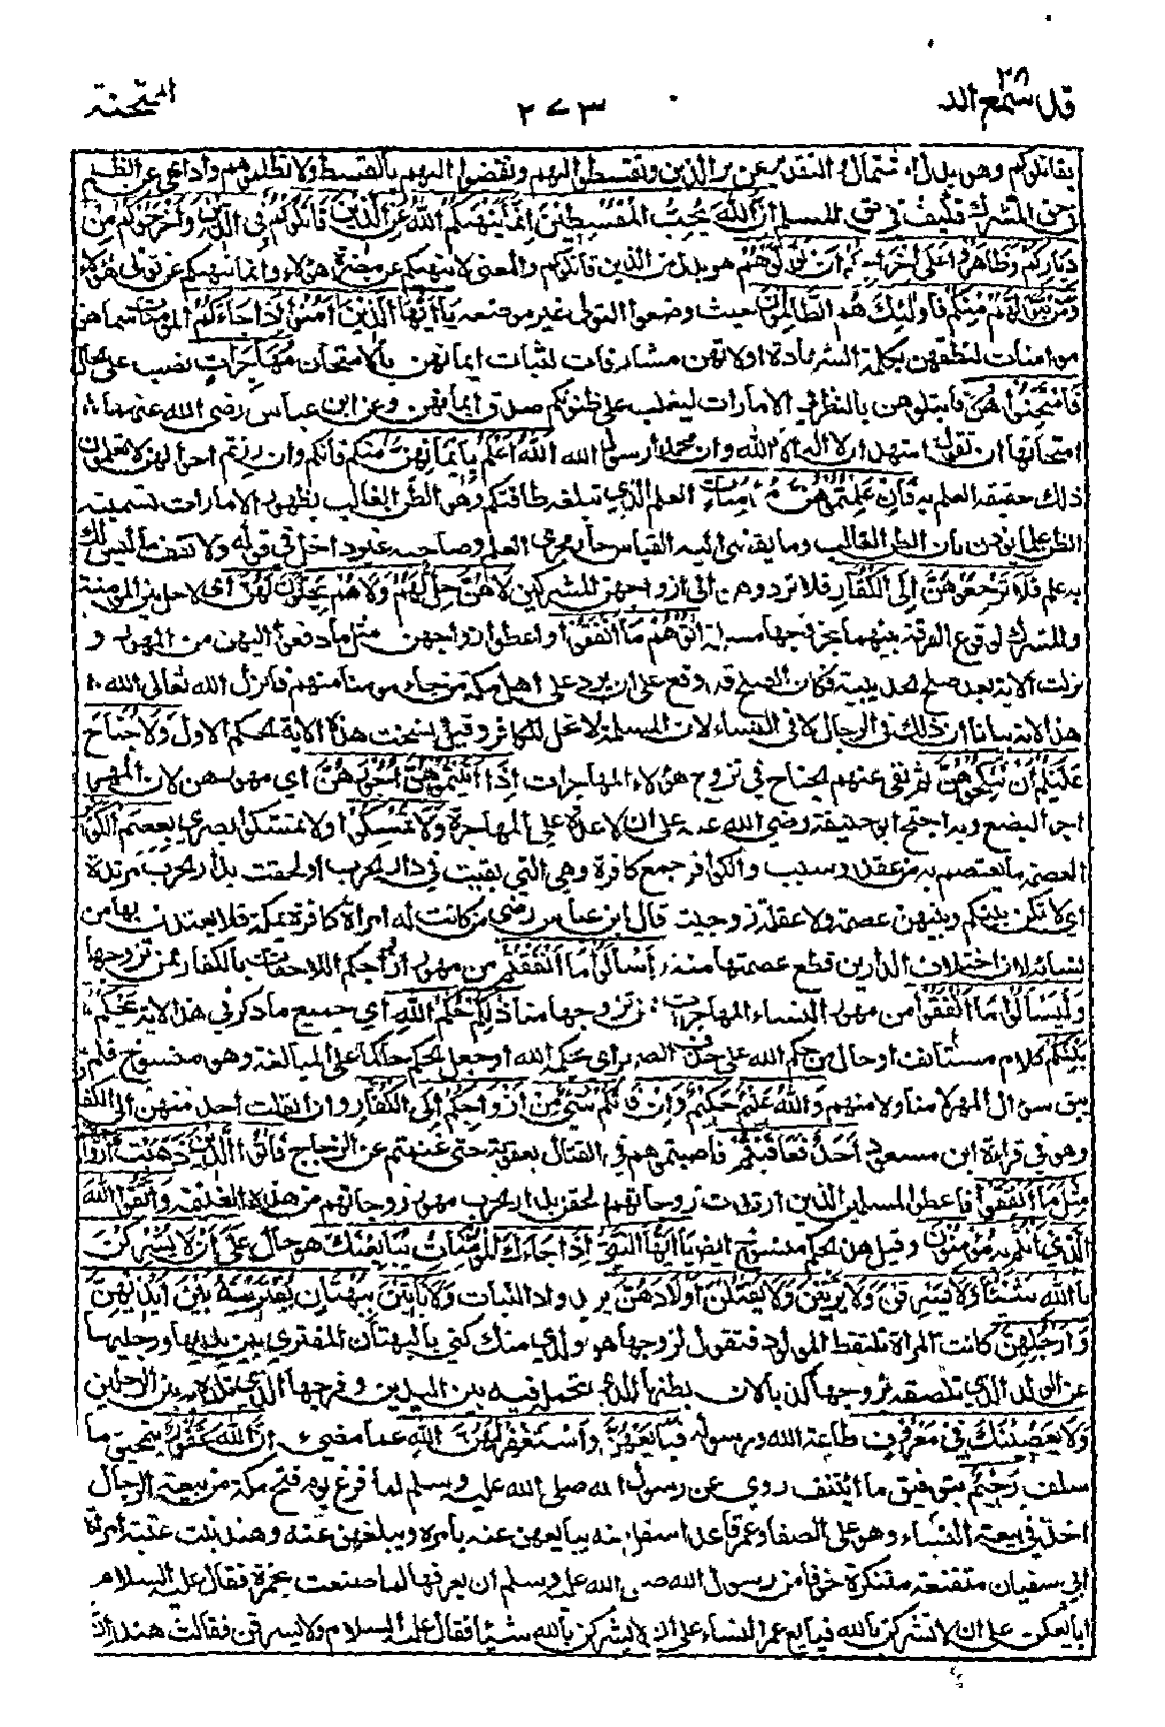 قد سمع الله ٢٨
٢٧٣
الممتحنة
يقاتلوكم وهو بدل اشتمال التقدير عن بر الذين وتقسطوا اليهم وتقضوا اليهم بالقسط ولا تظلموهم واذا نهى عن الظلم
في حق المشرك فكيف في حق المسلم ان الله يحب المقسطين انما ينهىكم الله عن الذين قاتلوكم في الدين واخرجوكم من
دياركم وظاهروا على اخراجكم ان تولوهم هو بدل من الذين قاتلوكم والمعنى لا ينهىكم عن مبرة هؤلاء وانما ينهىكم عن تولى هؤلاء
ومن يتولهم منكم فاولئك هم الظالمون حيث وضعوا التولى غير موضعه يا ايها الذين امنوا اذا جاءكم المؤمنات سماهن
مؤمنات لنطقهن بكلمة الشهادة اولانهن مشارفات لثبات ايمانهن بالامتحان مهاجرات نصب على الحال
فامتحنوهن فابتلوهن بالنظر في الامارات ليغلب على ظنونكم صدق ايمانهن وعن ابن عباس رضى الله عنهما
امتحانها ان تقول اشهد ان لا اله الا الله وان محمدا رسول الله الله اعلم بايمانهن منكم فانكم وان رزتم احوالهن لا تعلمون
ذلك حقيقة العلم به فان علمتموهن مؤمنات العلم الذي تبلغه طاقتكم وهو الظن الغالب بظهور الامارات لتسميته
الظن علما يؤذن بان الظن الغالب وما يفضى اليه القياس جار مجرى العلم وصاحبه غير داخل في قوله ولا تقف ما ليس لك
به علم فلا ترجعوهن الى الكفار فلا تردوهن الى ازواجهن المشركين لا هن حل لهم ولا هم يحلون لهن اى لا حل بين المؤمنة
والمشرك لوقوع الفرقة بينهما بخروجها مسلمة واتوهم ما انفقوا واعطوا ازواجهن مثل ما دفعوا اليهن من المهور و
نزلت الاية بعد صلح الحديبية فكان الصلح قد وقع على ان يرد على اهل مكة من جاء مؤمنا منهم فانزل الله تعالى
هذا الاية بيانا ان ذلك في الرجال لا في النساء لان المسلمة لا تحل للكافر وقيل نسخت هذا الاية الحكم الاول ولا جناح
عليكم ان تنكحوهن ثم نفى عنهم الجناح في تزوج هؤلاء المهاجرات اذا اتيتموهن اجورهن اي مهورهن لان المهر
اجر البضع وبه احتج ابو حنيفة رضي الله عنه على ان لا عدة على المهاجرة ولا تمسكوا ولا تمسكوا بصرى بعصم الكوافر
العصمة ما يعتصم به من عقد وسبب والكوافر جمع كافرة وهي التي بقيت في دار الحرب او لحقت بدار الحرب مرتدة
اي لا تكن بينكم وبينهن عصمة ولا علقة زوجية قال ابن عباس رضى من كانت له امرأة كافرة بمكة فلا يعتدن بها من
نسائه لان اختلاف الدارين قطع عصمتها منه واسألوا ما انفقتم من مهور ازواجكم اللاحقات بالكفار ممن تزوجها
وليسألوا ما انفقوا من مهور النساء المهاجرات ممن تزوجها منا ذلكم حكم الله اي جميع ما ذكر في هذا الاية يحكم
بينكم كلام مستأنف او حال من حكم الله على حذف الضمير اى يحكمه الله او جعل الحكم حاكما على المبالغة وهو منسوخ فلم
يبق سؤال المهر لا منا ولا منهم والله عليم حكيم وان فاتكم شيء من ازواجكم الى الكفار وان انفلت احد منهن الى الكفار
وهو في قراءة ابن مسعود احد فعاقبتم فاصبتموهم في القتال بعقوبة حتى غنمتم عن الزجاج فاتوا الذين ذهبت ازواجهم
مثل ما انفقوا فاعطوا المسلمين الذين ارتدت زوجاتهم ولحقن بدار الحرب مهور زوجاتهم من هذه الغنيمة واتقوا الله
الذي انتم به مؤمنون وقيل هذا الحكم منسوخ ايضا يا ايها النبي اذا جاءك المؤمنات يبايعنك هو حال على ان لا يشركن
بالله شيئا ولا يسرقن ولا يزنين ولا يقتلن اولادهن يريد واد البنات ولا ياتين ببهتان يفترينه بين ايديهن
وارجلهن كانت المرأة تلتقط المولود فتقول لزوجها هو ولدي منك كنى بالبهتان المفترى بين يديها ورجليها
عن الولد الذي تلصقه بزوجها كذبا لان بطنها الذي تحمله فيه بين اليدين وفرجها الذي تلده به بين الرجلين
ولا يعصينك في معروف طاعة الله ورسوله فبايعهن واستغفر لهن الله عما مضى ان الله غفور بتمحيق ما
سلف رحيم بتوفيق ما ائتنف روي عن رسول الله صلى الله عليه وسلم لما فرغ يوم فتح مكة من بيعة الرجال
اخذ في بيعة النساء وهو على الصفا وعمر قاعد اسفل منه يبايعهن عنه بامره ويبلغهن عنه وهند بنت عتبة امرأة
ابي سفيان متقنعة متنكرة خوفا من رسول الله صلى الله عليه وسلم ان يعرفها لما صنعت بحمزة فقال عليه السلام
ابايعكن على ان لا تشركن بالله فبايع عمر النساء على ان لا يشركن بالله شيئا فقال عليه السلام ولا يسرقن فقالت هند ان